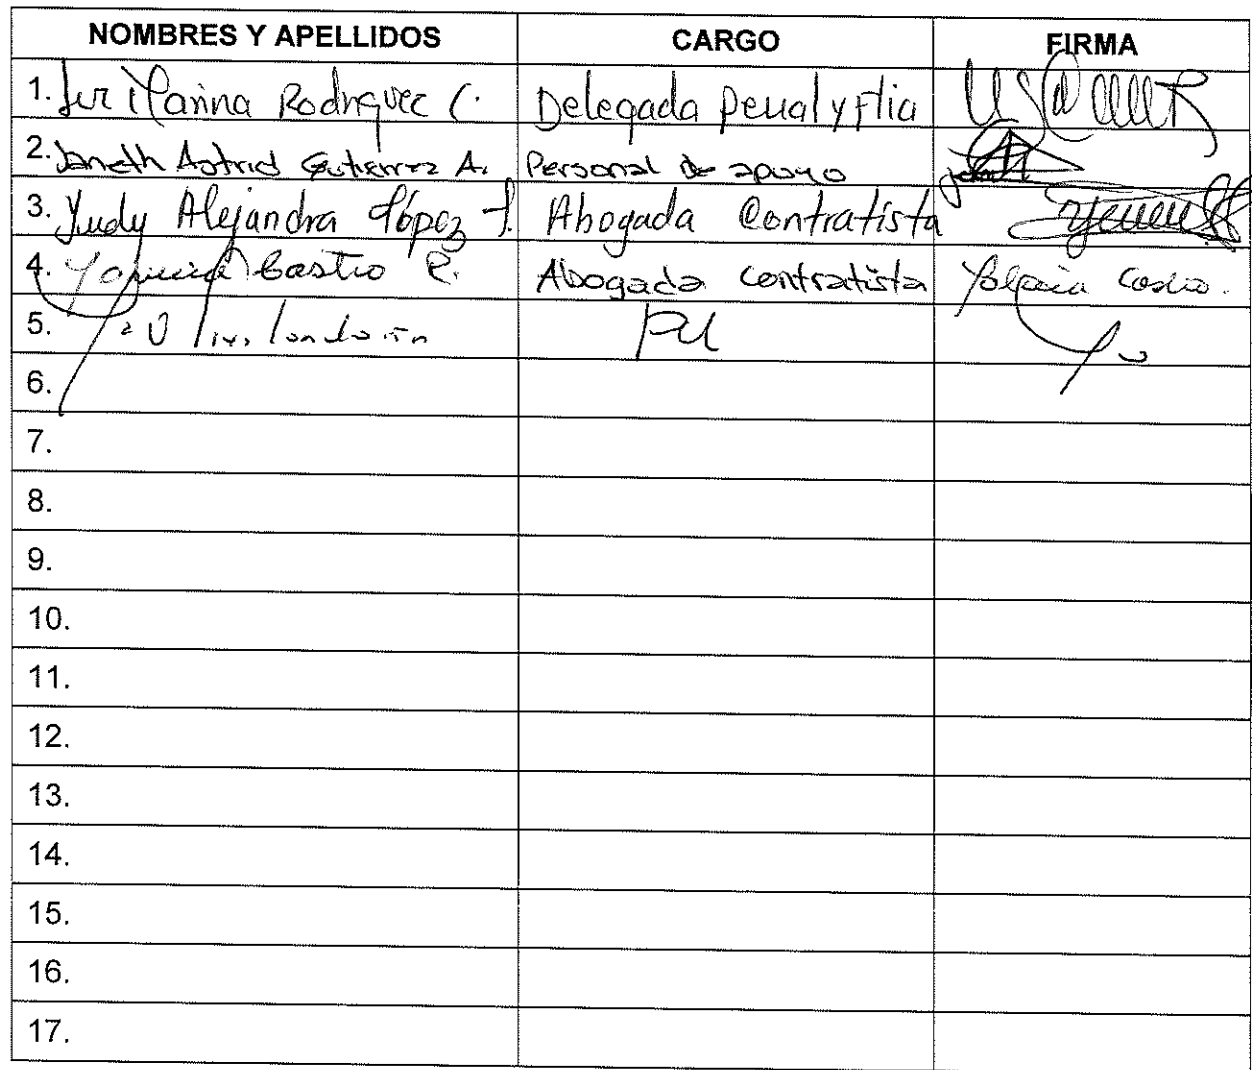 NOMBRES Y APELLIDOS CARGO FIRMA
1. Luz Marina Rodríguez C. Delegada Penal y Flia
2. Janeth Astrid Gutierrez A. Personal de apoyo
3. Yudy Alejandra López Abogada Contratista
4. Castro R. Abogada contratista Castro.
5. PU
6.
7.
8.
9.
10.
11.
12.
13.
14.
15.
16.
17.